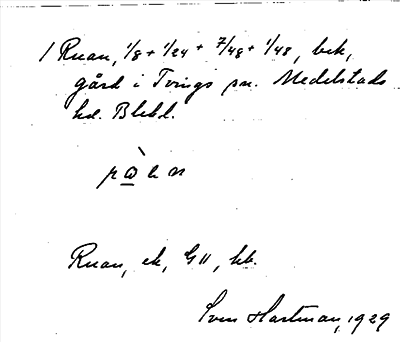 1 Ruan, 1/8 + 1/24 + 7/48 + 1/48, bek,
gård i Tvings sn. Medelstads
hd. Blekd.
Ruan, ek, GII, kb.
Sven Hartman, 1929